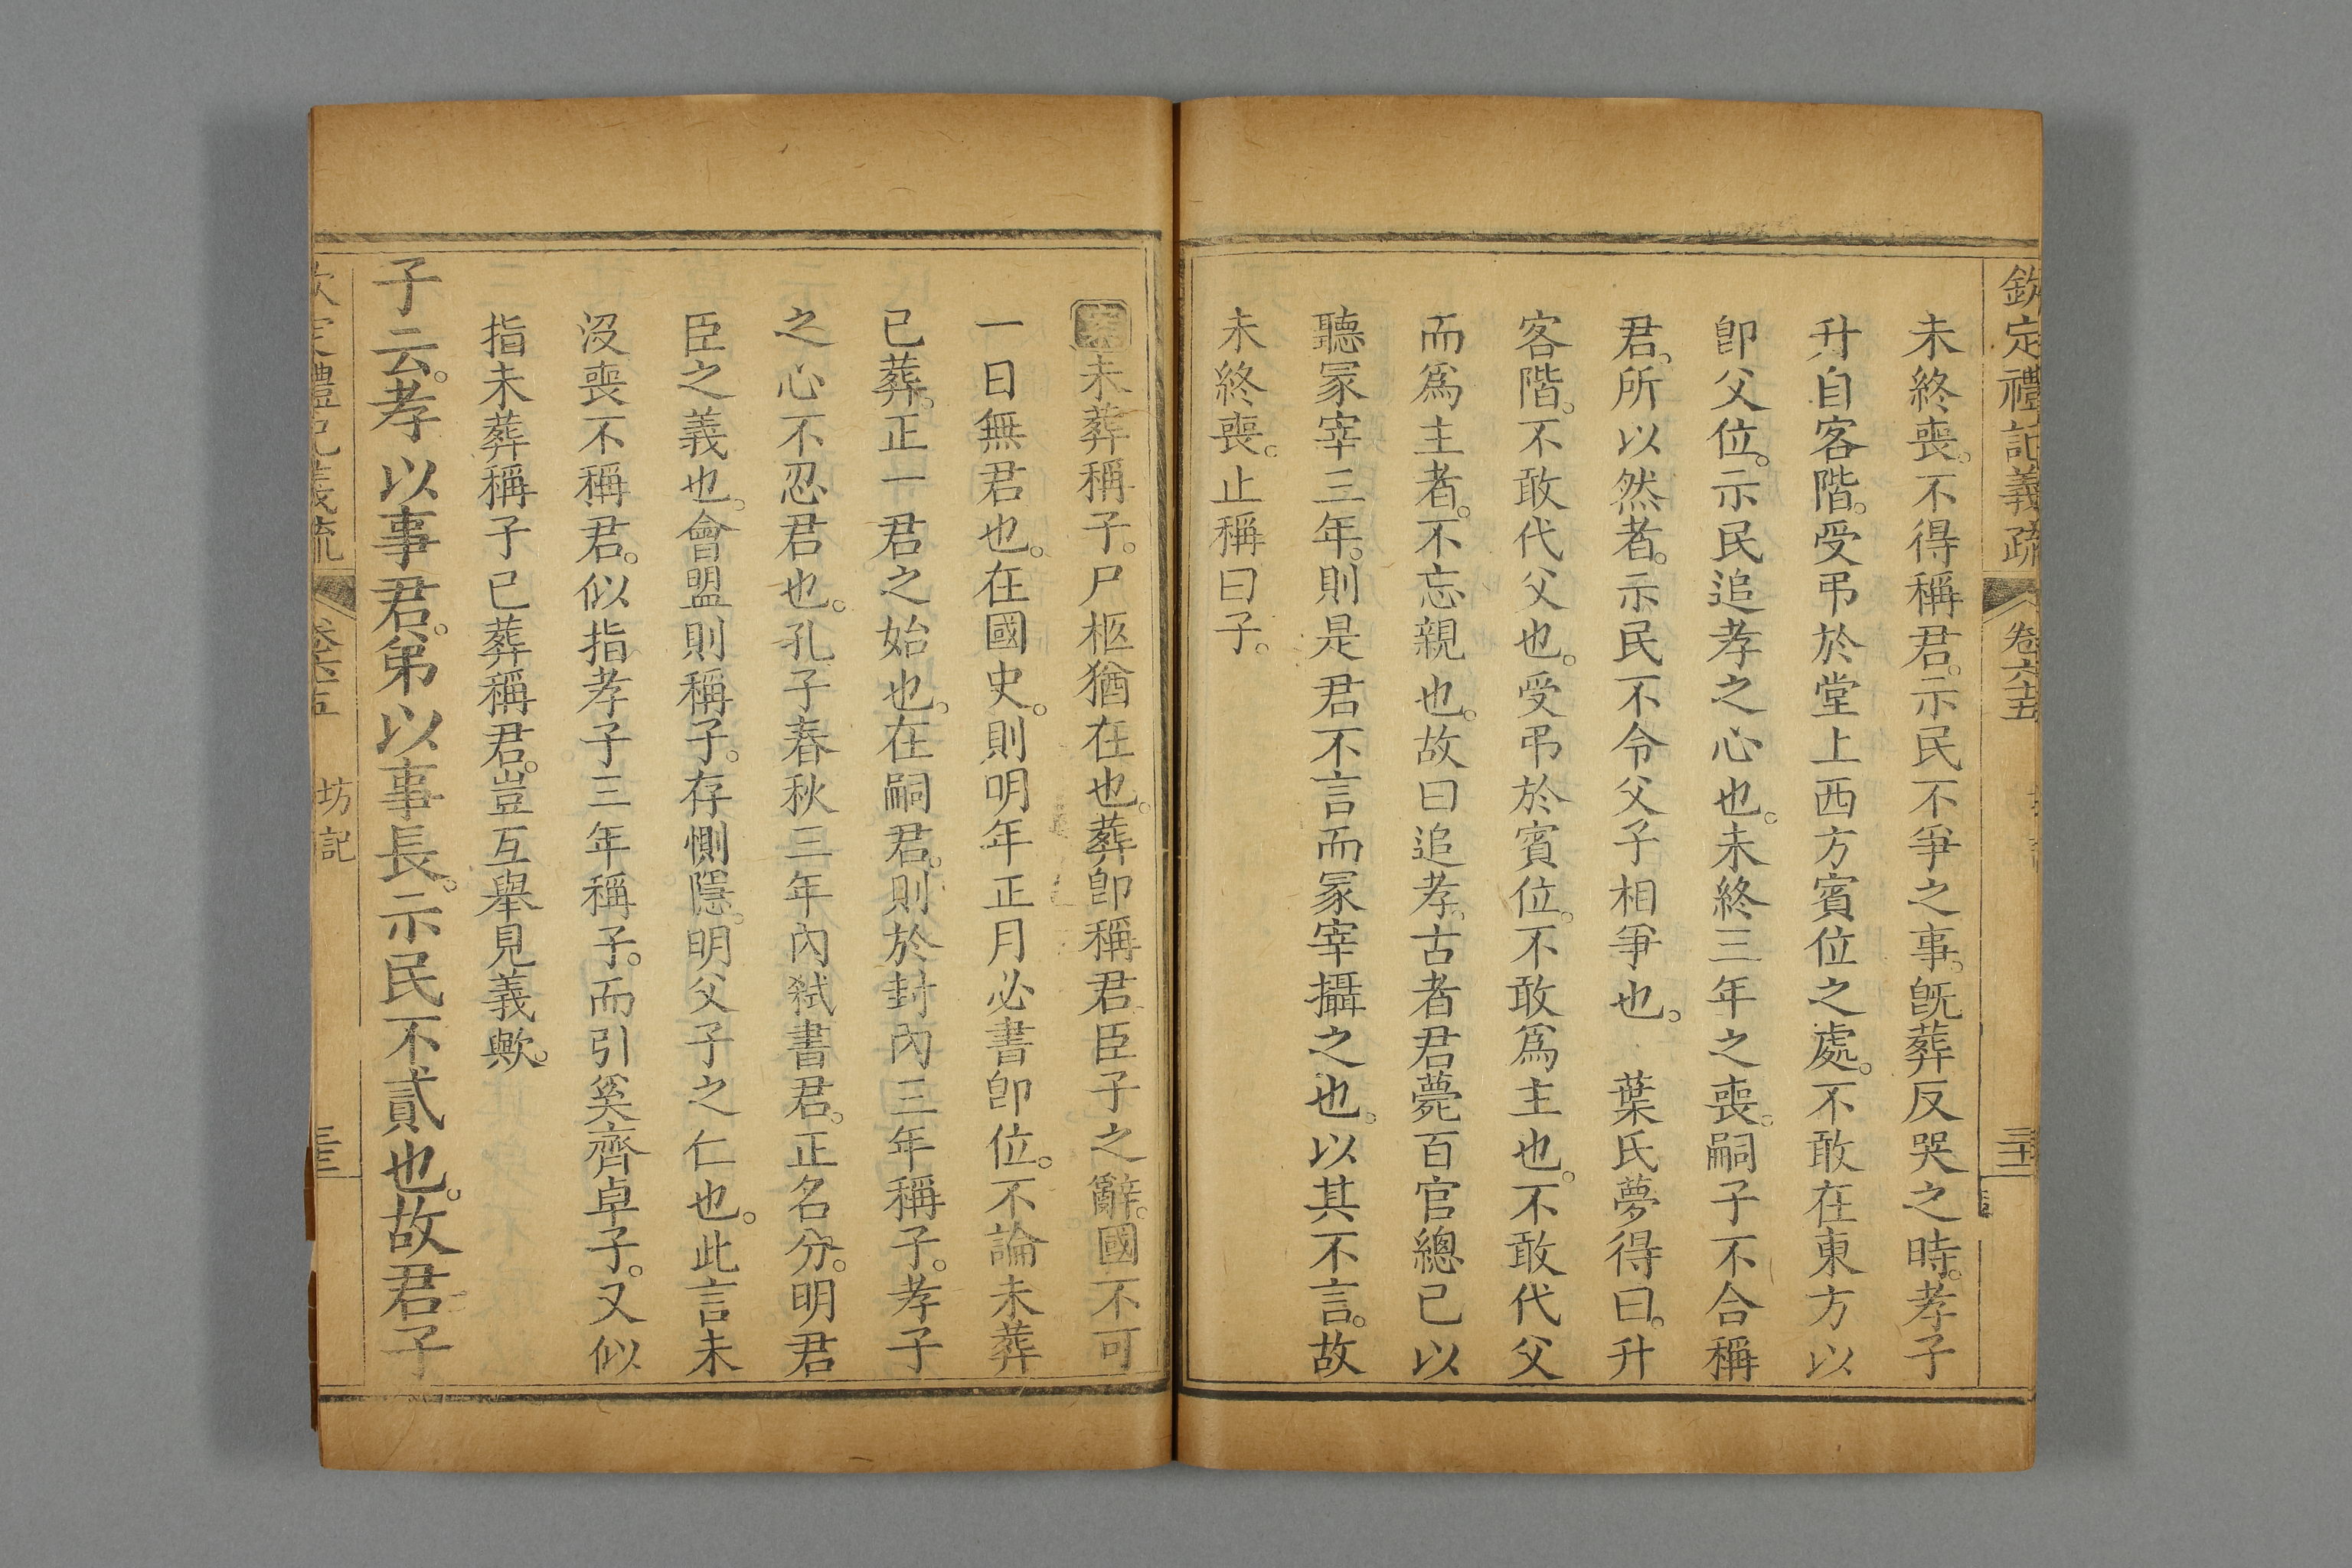 欽定禮記義疏 卷六十五
未終喪。不得稱君。示民不爭之事。旣葬反哭之時。孝子
升自客階。受弔於堂上西方賓位之處。不敢在東方以
卽父位。示民追孝之心也。未終三年之喪。嗣子不合稱
君。所以然者。示民不令父子相爭也。 葉氏夢得曰。升
客階。不敢代父也。受弔於賓位。不敢爲主也。不敢代父
而爲主者。不忘親也。故曰追孝。古者君薨百官總己以
聽冢宰三年。則是君不言而冢宰攝之也。以其不言。故
未終喪。止稱曰子。
未葬稱子。尸柩猶在也。葬卽稱君。臣子之辭。國不可
一日無君也。在國史。則明年正月必書卽位。不論未葬
已葬。正一君之始也。在嗣君。則於封內三年稱子。孝子
之心不忍君也。孔子春秋三年內弑書君。正名分。明君
臣之義也。會盟則稱子。存惻隱。明父子之仁也。此言未
沒喪不稱君。似指孝子三年稱子。而引奚齊卓子。又似
指未葬稱子已葬稱君。豈互舉見義歟。
子云。孝以事君。弟以事長。示民不貳也。故君子
欽定禮記義疏 卷六十五 坊記